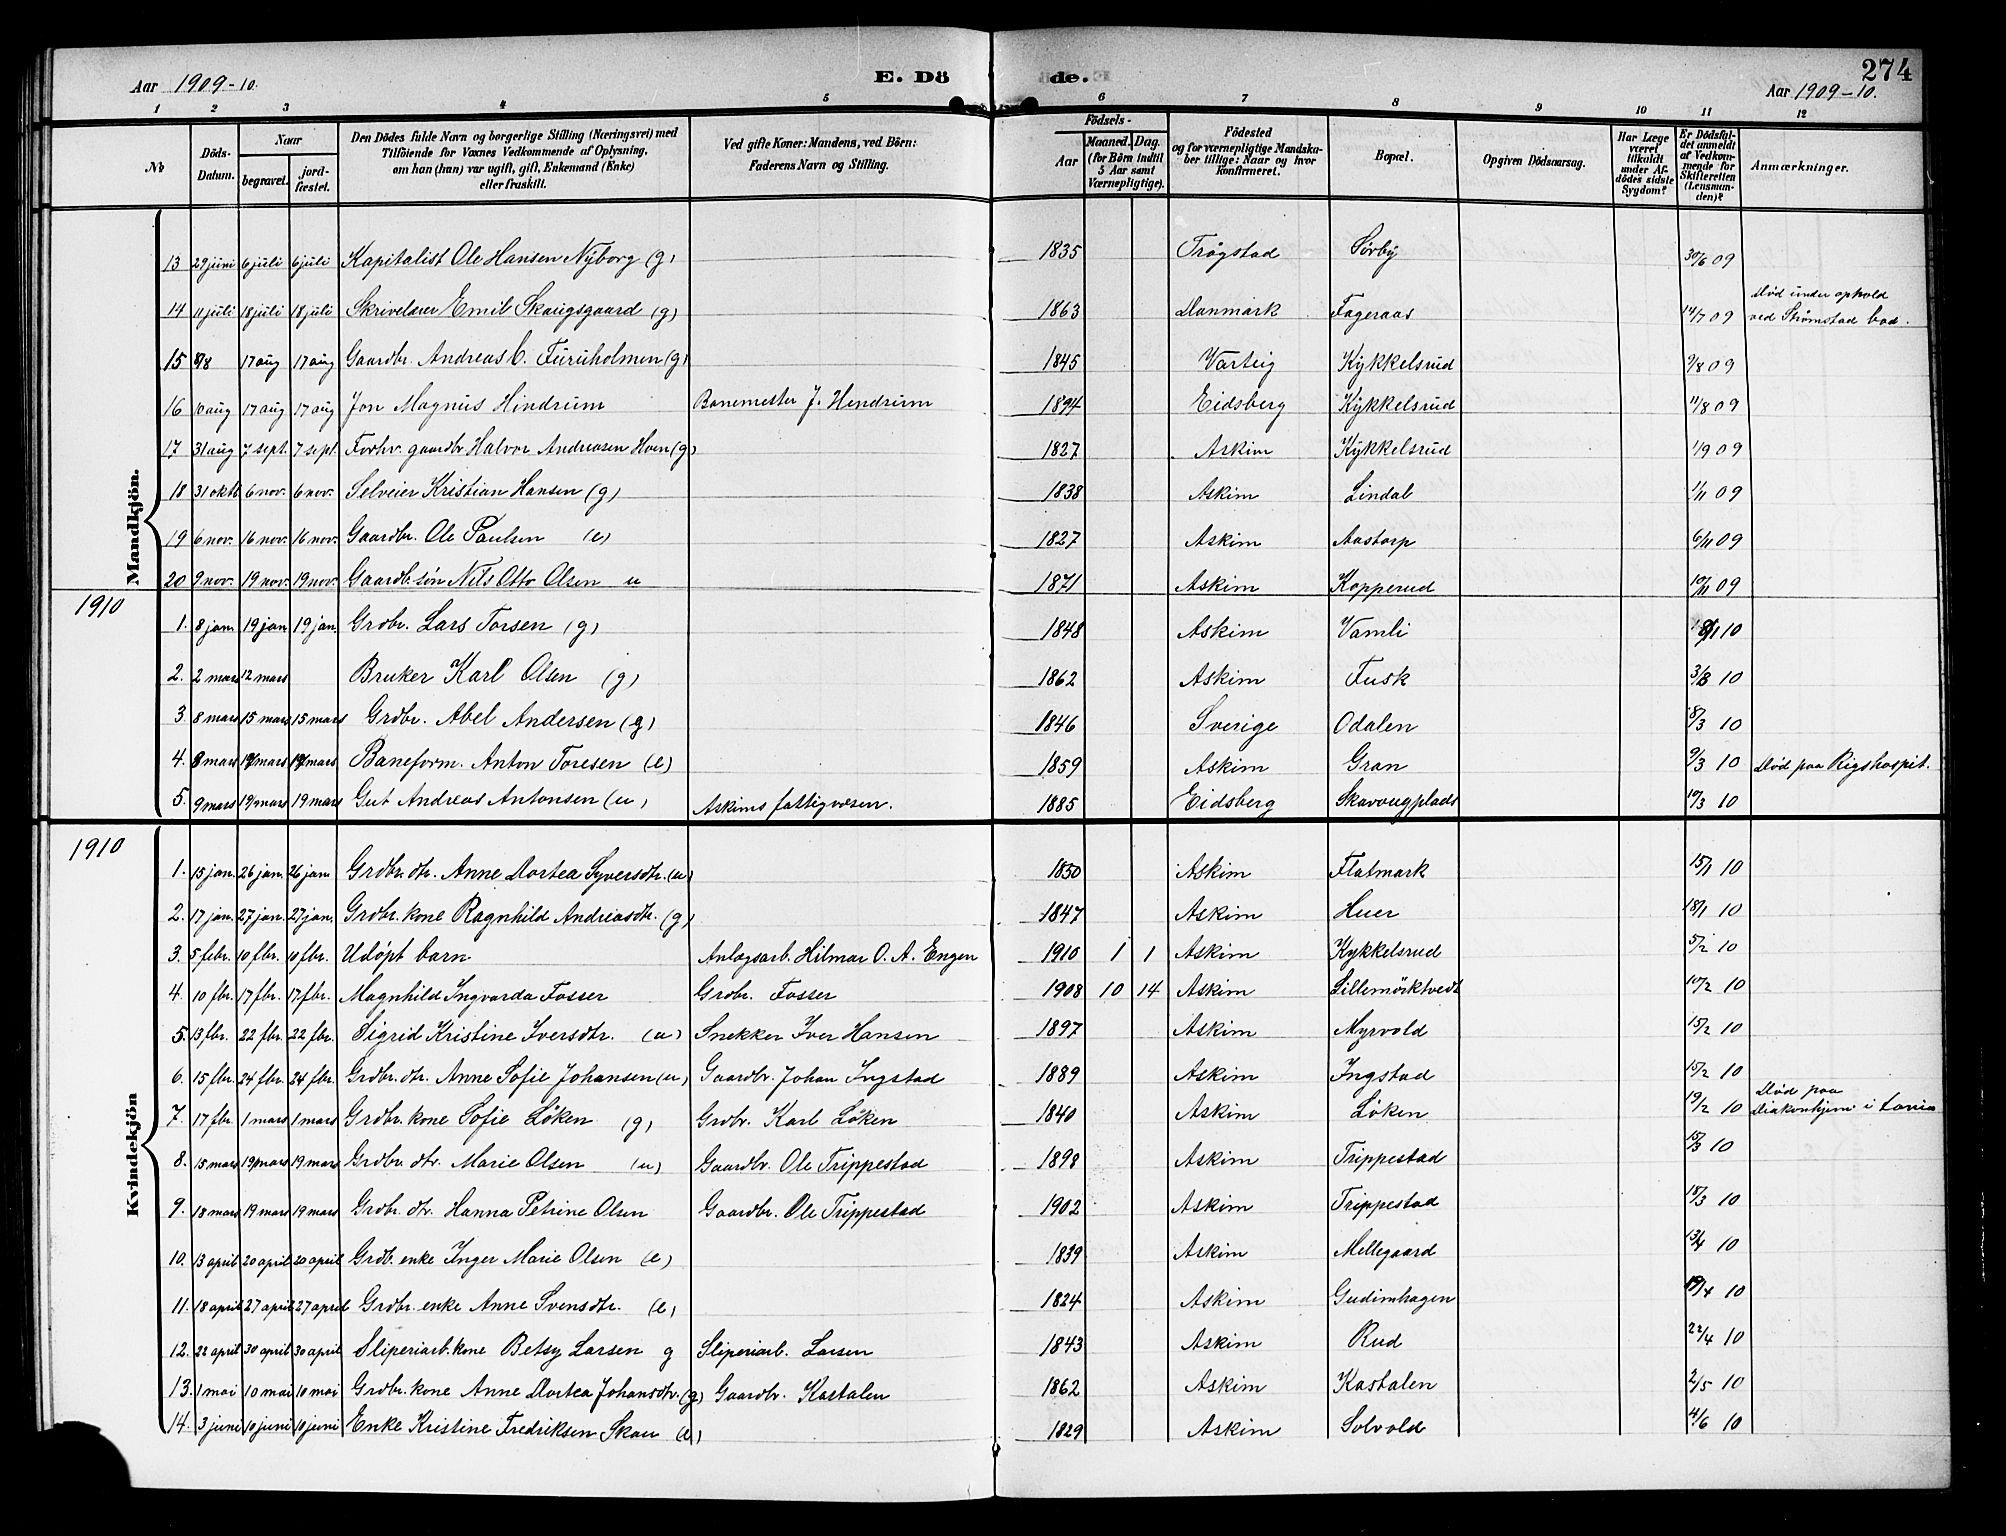 Aar 1909-10. E. Dö de. 274
Aar 1909-10.
1 2 3 4 5 6 7 8 9 10 11 12
No Döds-Datum. Naar begravet. jordfæstet. Den Dödes fulde Navn og borgerlige Stilling (Næringsvei) med Tilföiende for Voxnes Vedkommende af Oplysning, om han (hun) var ugift, gift, Enkemand (Enke) eller fraskilt. Ved gifte Koner: Mandens, ved Börn: Faderens Navn og Stilling. Födsels- Aar Maaned. Dag. (for Börn indtil 5 Aar samt Værnepligtige). Födested og for værnepligtige Mandskaber tillige: Naar og hvor konfirmeret. Bopæl. Opgiven Dödsaarsag. Har Læge været tilkaldt under Afdödes sidste Sygdom? Er Dödsfaldet anmeldt af Vedkommende for Skifteretten (Lensmanden)? Anmærkninger.
Mandkjön.
13 29 juni 6 juli 6 juli Kapitalist Ole Hansen Nyborg (g) 1835 Trøgstad Sørby 30/6 09
14 11 juli 18 juli 18 juli Skrivelærer Emil Skaugsgaard (g) 1863 Danmark Fageraas 14/7 09 Død under ophold ved Strømstad bad.
15 8/8 17 aug 17 aug Gaardbr. Andreas C. Furuholmen (g) 1845 Varteig Kykkelsrud 9/8 09
16 10 aug 17 aug 17 aug Jon Magnus Hindrum Banemester J. Hendrum 1894 Eidsberg Kykkelsrud 11/8 09
17 31 aug 7 sept. 7 sept. Forhv. gaardbr Halvor Andreasen Hoen (g) 1827 Askim Kykkelsrud 1/9 09
18 31 oktb 6 nov. 6 nov. Selveier Kristian Hansen (g) 1838 Askim Lindal 1/11 09
19 6 nov. 16 nov. 16 nov. Gaardbr. Ole Paulsen (e) 1827 Askim Aastorp 6/11 09
20 9 nov. 19 nov. 19 nov. Gaardb. søn Nils Otto Olsen u 1871 Askim Kopperud 10/11 09
1910
1. 8 jan. 19 jan 19 jan. Grdbr. Lars Torsen (g) 1848 Askim Vamli 8/1 10
2. 2 mars 12 mars Bruker Karl Olsen (g) 1862 Askim Fusk 3/3 10
3. 8 mars 15 mars 15 mars Grdbr. Abel Andersen (g) 1846 Sverige Odalen 8/3 10
4. 8 mars mars mars Baneform. Anton Toresen (e) 1859 Askim Gran 9/3 10 Død paa Rigshospit.
5. 9 mars 19 mars 19 mars Gut Andreas Antonsen (u) Askims fattigvæsen. 1885 Eidsberg Skavougplads 10/3 10
1910
Kvindekjön
1. 15 jan. 26 jan. 26 jan. Grdbr. dtr. Anne Dortea Syversdtr. (u) 1830 Askim Flatmark 15/1 10
2. 17 jan. 27 jan. 27 jan. Grdbr. kone Ragnhild Andreasdtr. (g) 1847 Askim Huer 18/1 10
3. 5 febr. 10 fbr. 10 fbr. Udøpt barn Anlægsarb. Hilmar O. A. Engen 1910 1 1 Askim Kykkelsrud 5/2 10
4. 10 fbr. 17 fbr. 17 fbr. Magnhild Ingvarda Fosser Grdbr. Fosser 1908 10 14 Askim Lillemörktvedt 10/2 10
5. 13 fbr. 22 fbr. 22 fbr. Sigrid Kristine Iversdtr. (u) Snekker Iver Hansen 1897 Askim Myrvold 15/2 10
6. 15 fbr. 24 fbr. 24 fbr. Grdbr. dtr. Anne Sofie Johansen (u) Gaardbr. Johan Ingstad 1889 Askim Ingstad 15/2 10
7. 17 fbr. 1 mars 1 mars Grdbr. kone Sofie Løken (g) Grdbr. Karl Løken 1840 Askim Løken 19/2 10 Død paa Diakonhjem i
8. 15 mars 19 mars 19 mars Grdbr. dtr. Marie Olsen (u) Gaardbr. Ole Trippestad 1898 Askim Trippestad 15/3 10
9. 18 mars 19 mars 19 mars Grdbr. dtr. Hanna Petrine Olsen Gaardbr. Ole Trippestad 1902 Askim Trippestad 18/3 10
10. 13 april 20 april 20 april Grdb. enke Inger Marie Olsen (e) 1839 Askim Mellegaard 13/4 10
11. 18 april 27 april 27 april Grdbr. enke Anne Svensdtr. (e) 1824 Askim Gudimhagen 19/4 10
12. 22 april 30 april 30 april Sliperiarb. kone Betsy Larsen g Sliperiarb. Larsen 1843 Askim Rud 22/4 10
13. 1 mai 10 mai 10 mai Grdbr. kone Anne Dortea Johansdtr. (g) Gaardbr. Kastalen 1862 Askim Kastalen 2/5 10
14. 3 juni 10 juni 10 juni Enke Kristine Fredriksen Skau (e) 1829 Askim Solvold 4/6 10